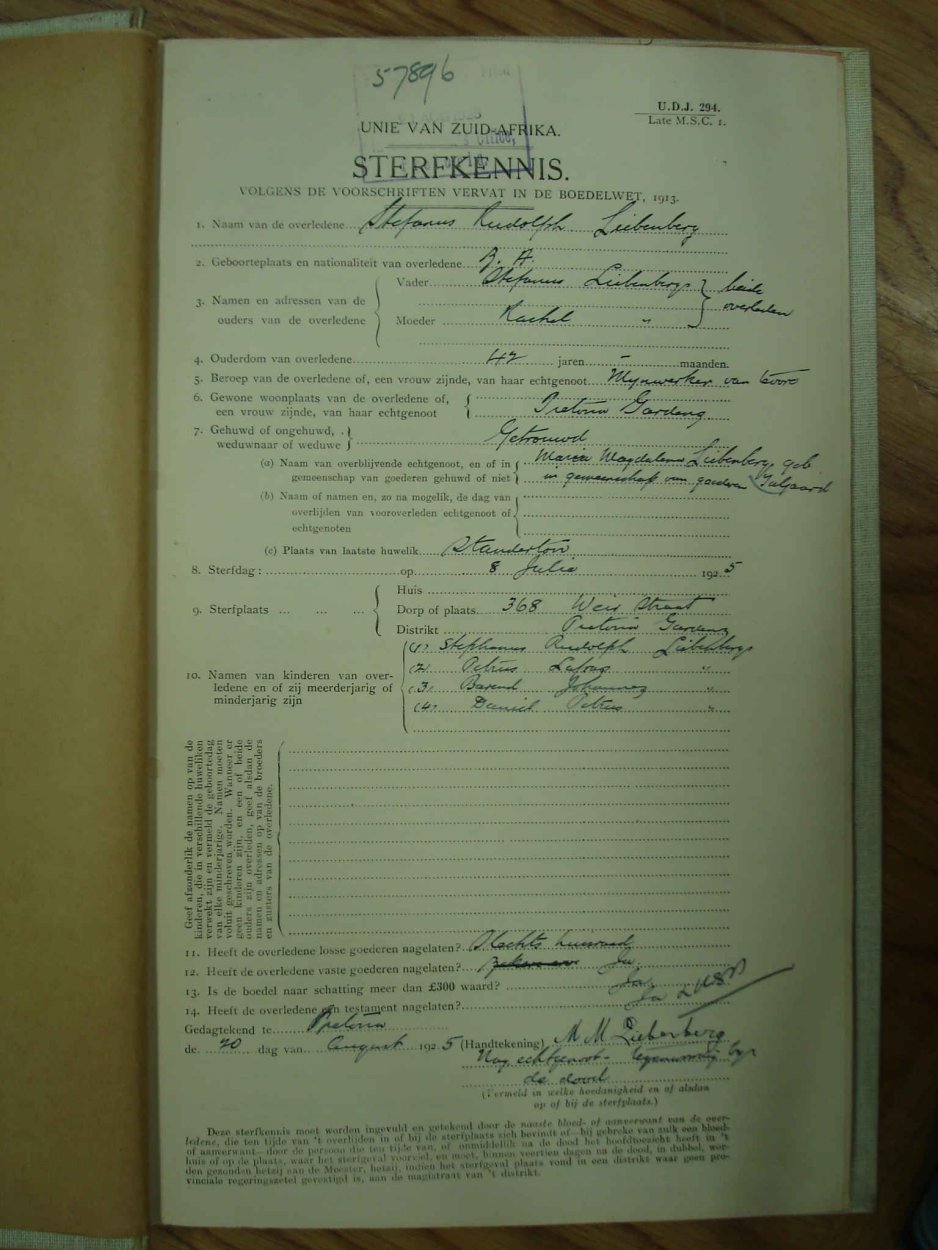 57896
U.D.J. 294.
Late M.S.C. 1.
UNIE VAN ZUID-AFRIKA.
STERFKENNIS.
VOLGENS DE VOORSCHRIFTEN VERVAT IN DE BOEDELWET, 1913.
1. Naam van de overledene Stefanus Rudolph Liebenberg
2. Geboorteplaats en nationaliteit van overledene Z. A.
3. Namen en adressen van de ouders van de overledene
Vader Stefanus Liebenberg
beide overleden
Moeder Rachel "
4. Ouderdom van overledene 42 jaren - maanden.
5. Beroep van de overledene of, een vrouw zijnde, van haar echtgenoot Mynwerker van
6. Gewone woonplaats van de overledene of,
een vrouw zijnde, van haar echtgenoot Pretoria Gardens
7. Gehuwd of ongehuwd,
weduwnaar of weduwe Getrouwd
(a) Naam van overblijvende echtgenoot, en of in
gemeenschap van goederen gehuwd of niet
Maria Magdalena Liebenberg geb
in gemeenschap van goederen
(b) Naam of namen en, zo na mogelik, de dag van
overlijden van vooroverleden echtgenoot of
echtgenoten
(c) Plaats van laatste huwelik Standerton
8. Sterfdag : op 8 Julie 1925
9. Sterfplaats ... ... ...
Huis
Dorp of plaats 368 Weir Straat
Distrikt Pretoria Gardens
10. Namen van kinderen van over-
ledene en of zij meerderjarig of
minderjarig zijn
(1) Stephanus Rudolph Liebenberg
(2) Petrus "
(3) Barend Johannes "
(4) Daniel Petrus "
Geef afzonderlik de namen op van de
kinderen, die in verschillende huweliken
verwekt zijn en vermeld de geboortedag
van elke minderjarige. Namen moeten
voluit geschreven worden. Wanneer er
geen kinderen zijn, en een of beide
ouders zijn overleden, geef alsdan de
namen en adressen op van de broeders
en zusters van de overledene.
11. Heeft de overledene losse goederen nagelaten? Slechts huisraad
12. Heeft de overledene vaste goederen nagelaten? Ja
13. Is de boedel naar schatting meer dan £300 waard? Ja
14. Heeft de overledene een testament nagelaten? Ja
Gedagtekend te Pretoria
de 20 dag van August 1925 (Handtekening) M M Liebenberg
Nag. echtgenoot - tegenwoordig by
de dood
(Vermeld in welke hoedanigheid en of alsdan
op of bij de sterfplaats.)
Deze sterfkennis moet worden ingevuld en getekend door de naaste bloed- of aanverwant van de over-
ledene, die ten tijde van 't overlijden in of bij de sterfplaats zich bevindt of—bij gebreke van zulk een bloed-
of aanverwant—door de persoon die ten tijde van, of onmiddellik na de dood het hoofdtoezicht heeft in 't
huis of op de plaats, waar het sterfgeval voorviel, en moet, binnen veertien dagen na de dood, in dubbel, wor-
den gezonden hetzij aan de Meester, hetzij, indien het sterfgeval plaats vond in een distrikt waar geen pro-
vinciale regeringszetel gevestigd is, aan de magistraat van 't distrikt.